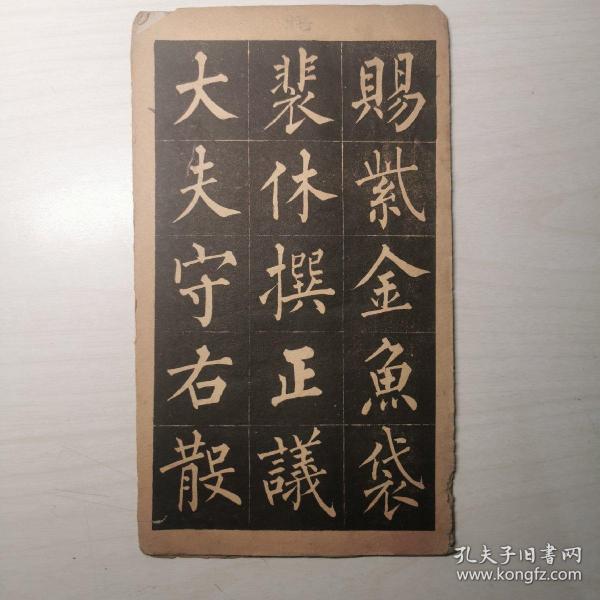 賜紫金魚袋
裴休撰正議
大夫守右散
孔夫子旧書网
www.kongfz.com